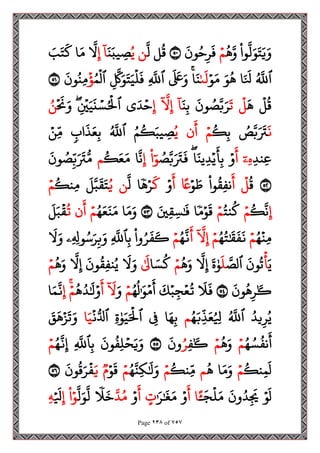 وَيَتَوَلَّوا۟ وَّهُمْ فَرِحُونَ ٥٠ قُل لَّن يُصِيبَنَآ إِلَّا مَا كَتَبَ
ٱللَّهُ لَنَا هُوَ مَوْلَىٰنَا ۚ وَعَلَى ٱللَّهِ فَلْيَتَوَكَّلِ ٱلْمُؤْمِنُونَ ٥١
قُلْ هَلْ تَرَبَّصُونَ بِنَآ إِلَّآ إِحْدَى ٱلْحُسْنَيَيْنِ ۖ وَنَحْنُ
نَتَرَبَّصُ بِكُمْ أَن يُصِيبَكُمُ ٱللَّهُ بِعَذَابٍ مِّنْ
عِندِهِۦٓ أَوْ بِأَيْدِينَا ۖ فَتَرَبَّصُوٓا۟ إِنَّا مَعَكُم مُّتَرَبِّصُونَ
٥٢ قُلْ أَنفِقُوا۟ طَوْعًا أَوْ كَرْهًا لَّن يُتَقَبَّلَ مِنكُمْ ۖ
إِنَّكُمْ كُنتُمْ قَوْمًا فَٰسِقِينَ ٥٣ وَمَا مَنَعَهُمْ أَن تُقْبَلَ
مِنْهُمْ نَفَقَٰتُهُمْ إِلَّآ أَنَّهُمْ كَفَرُوا۟ بِٱللَّهِ وَبِرَسُولِهِۦ وَلَا
يَأْتُونَ ٱلصَّلَوٰةَ إِلَّا وَهُمْ كُسَالَىٰ وَلَا يُنفِقُونَ إِلَّا وَهُمْ
كَٰرِهُونَ ٥٤ فَلَا تُعْجِبْكَ أَمْوَٰلُهُمْ وَلَآ أَوْلَٰدُهُمْ ۚ إِنَّمَا
يُرِيدُ ٱللَّهُ لِيُعَذِّبَهُم بِهَا فِى ٱلْحَيَوٰةِ ٱلدُّنْيَا وَتَزْهَقَ
أَنفُسُهُمْ وَهُمْ كَٰفِرُونَ ٥٥ وَيَحْلِفُونَ بِٱللَّهِ إِنَّهُمْ
لَمِنكُمْ وَمَا هُم مِّنكُمْ وَلَٰكِنَّهُمْ قَوْمٌ يَفْرَقُونَ ٥٦
لَوْ يَجِدُونَ مَلْجَـًٔا أَوْ مَغَٰرَٰتٍ أَوْ مُدَّخَلًا لَّوَلَّوْا۟ إِلَيْهِ
Page ٢٣٨ of ٧٥٧